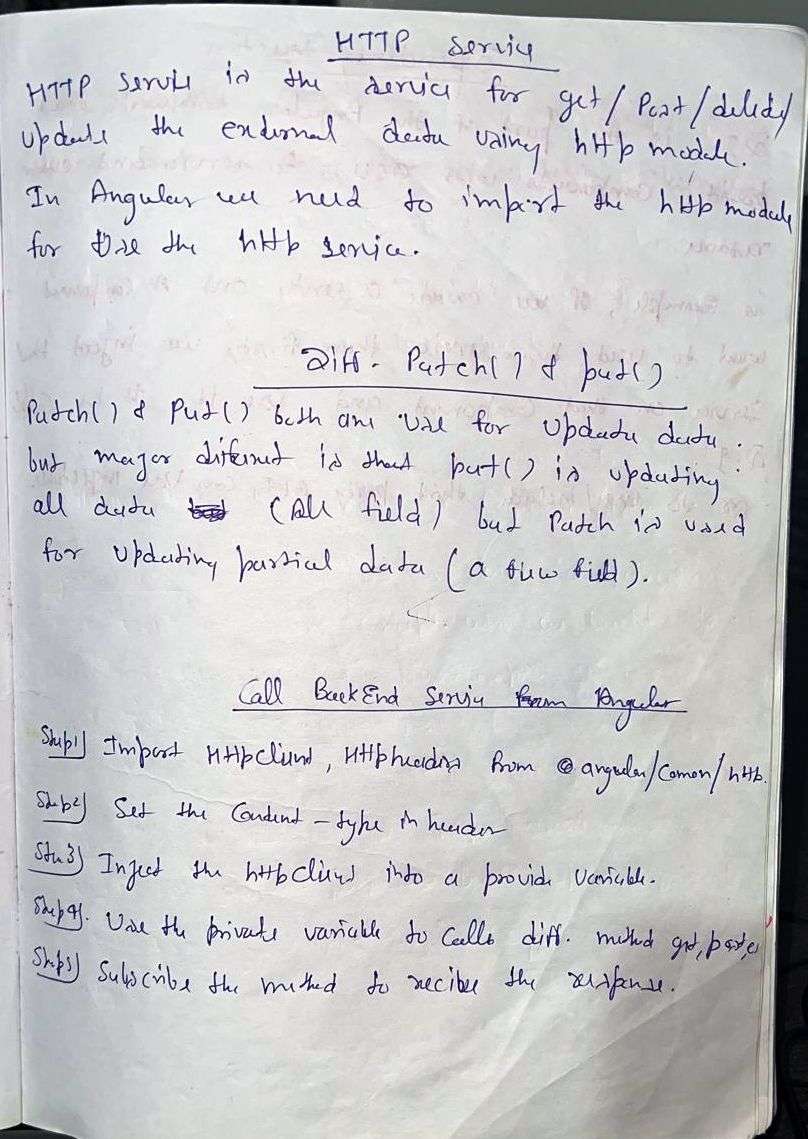 HTTP Service
HTTP Service is the service for get/Post/delete/
Update the external data using http module.
In Angular we need to import the http module
for Use the http service.
Diff. Patch() & put()
Patch() & Put() both are use for update data.
but major different is that put() is updating
all data (All field) but Patch is used
for updating partial data (a few field).
Call BackEnd Service From Angular
Step1) Import HttpClient, Httpheaders from @angular/Comon/http.
Step2) Set the Content-type in header
Step3) Inject the httpClient into a private variable.
Step4). Use the private variable to calls diff. method get, post,
Step5) Subscribe the method to recibe the response.